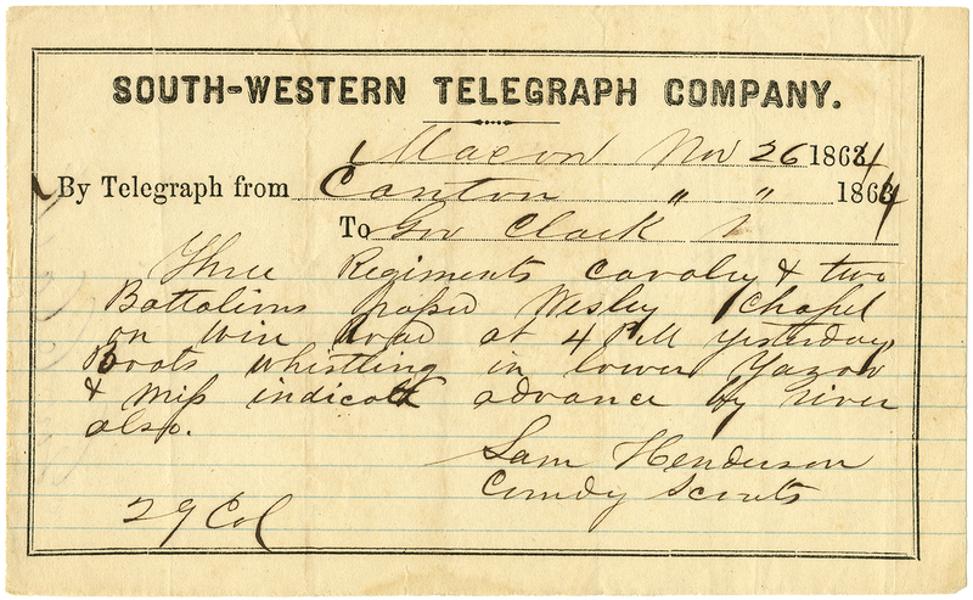 SOUTH-WESTERN TELEGRAPH COMPANY.
Macon Nov 26 1864
By Telegraph from Canton " " 1864
To Gov Clark
Three Regiments Cavalry & two
Battalions passed Wesley Chapel
on road at 4 PM yesterday
Boats whistling in lower Yazoo
& Miss indicate advance by river
also.
Sam Henderson
Comdg Scouts
29 Col